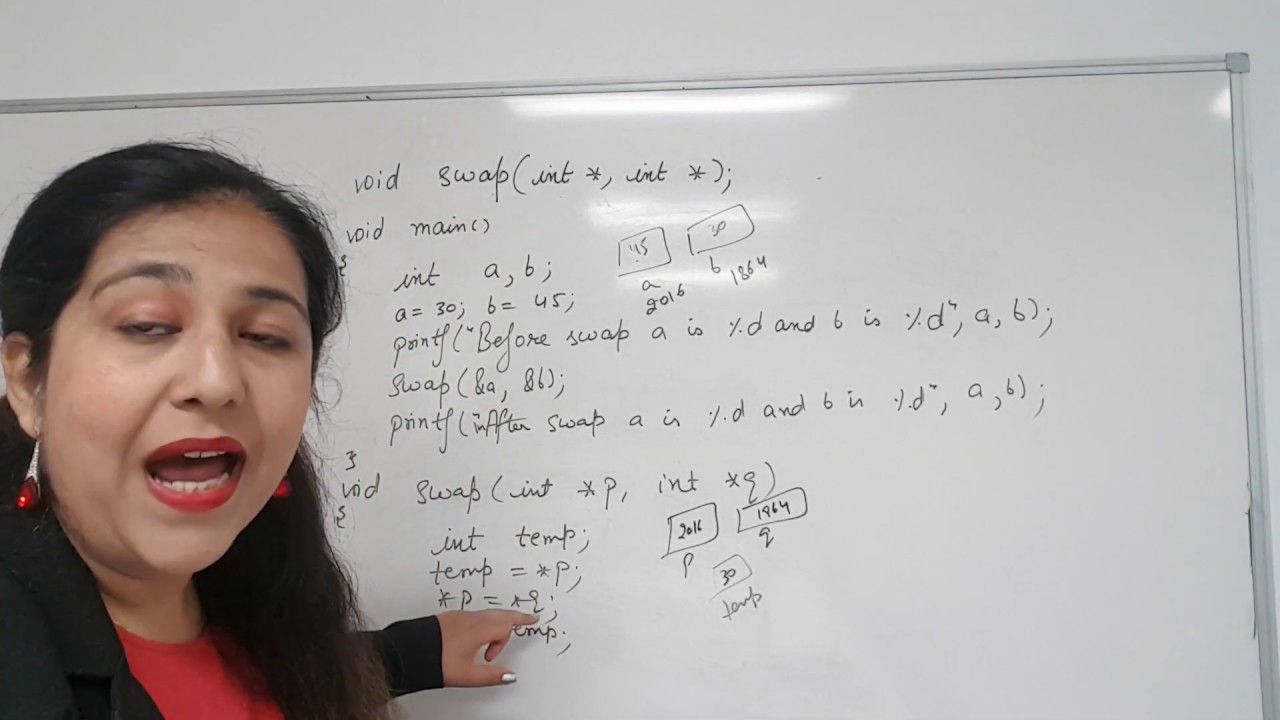 void swap(int *, int *);
void main()
{
int a, b;
a = 30; b = 45;
45 30
a b
2016 1864
printf("Before swap a is %d and b is %d", a, b);
swap(&a, &b);
printf("After swap a is %d and b is %d", a, b);
}
void swap(int *p, int *q)
{
2016 1864
p q
int temp;
temp = *p;
30
temp
*p = *q;
temp;